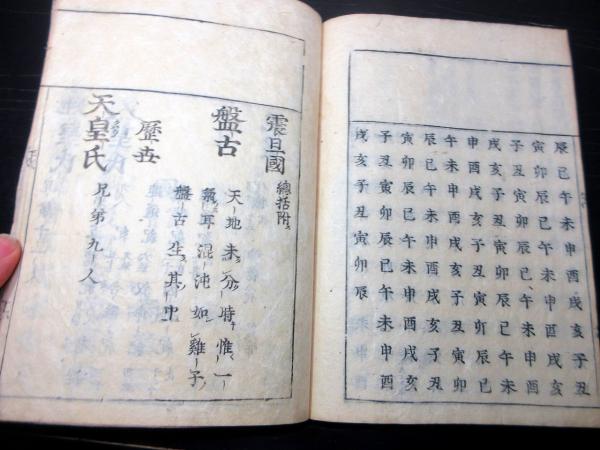 辰巳午未申酉戌亥子丑
寅卯辰巳午未申酉戌亥
子丑寅卯辰巳午未申酉
戌亥子丑寅卯辰巳午未
申酉戌亥子丑寅卯辰巳
午未申酉戌亥子丑寅卯
辰巳午未申酉戌亥子丑
寅卯辰巳午未申酉戌亥
子丑寅卯辰巳午未申酉
戌亥子丑寅卯辰
震旦國 總括附
盤古
天地未分時惟一
氣耳混沌如雞子
盤古生其中
歷世
天皇氏 兄弟九人